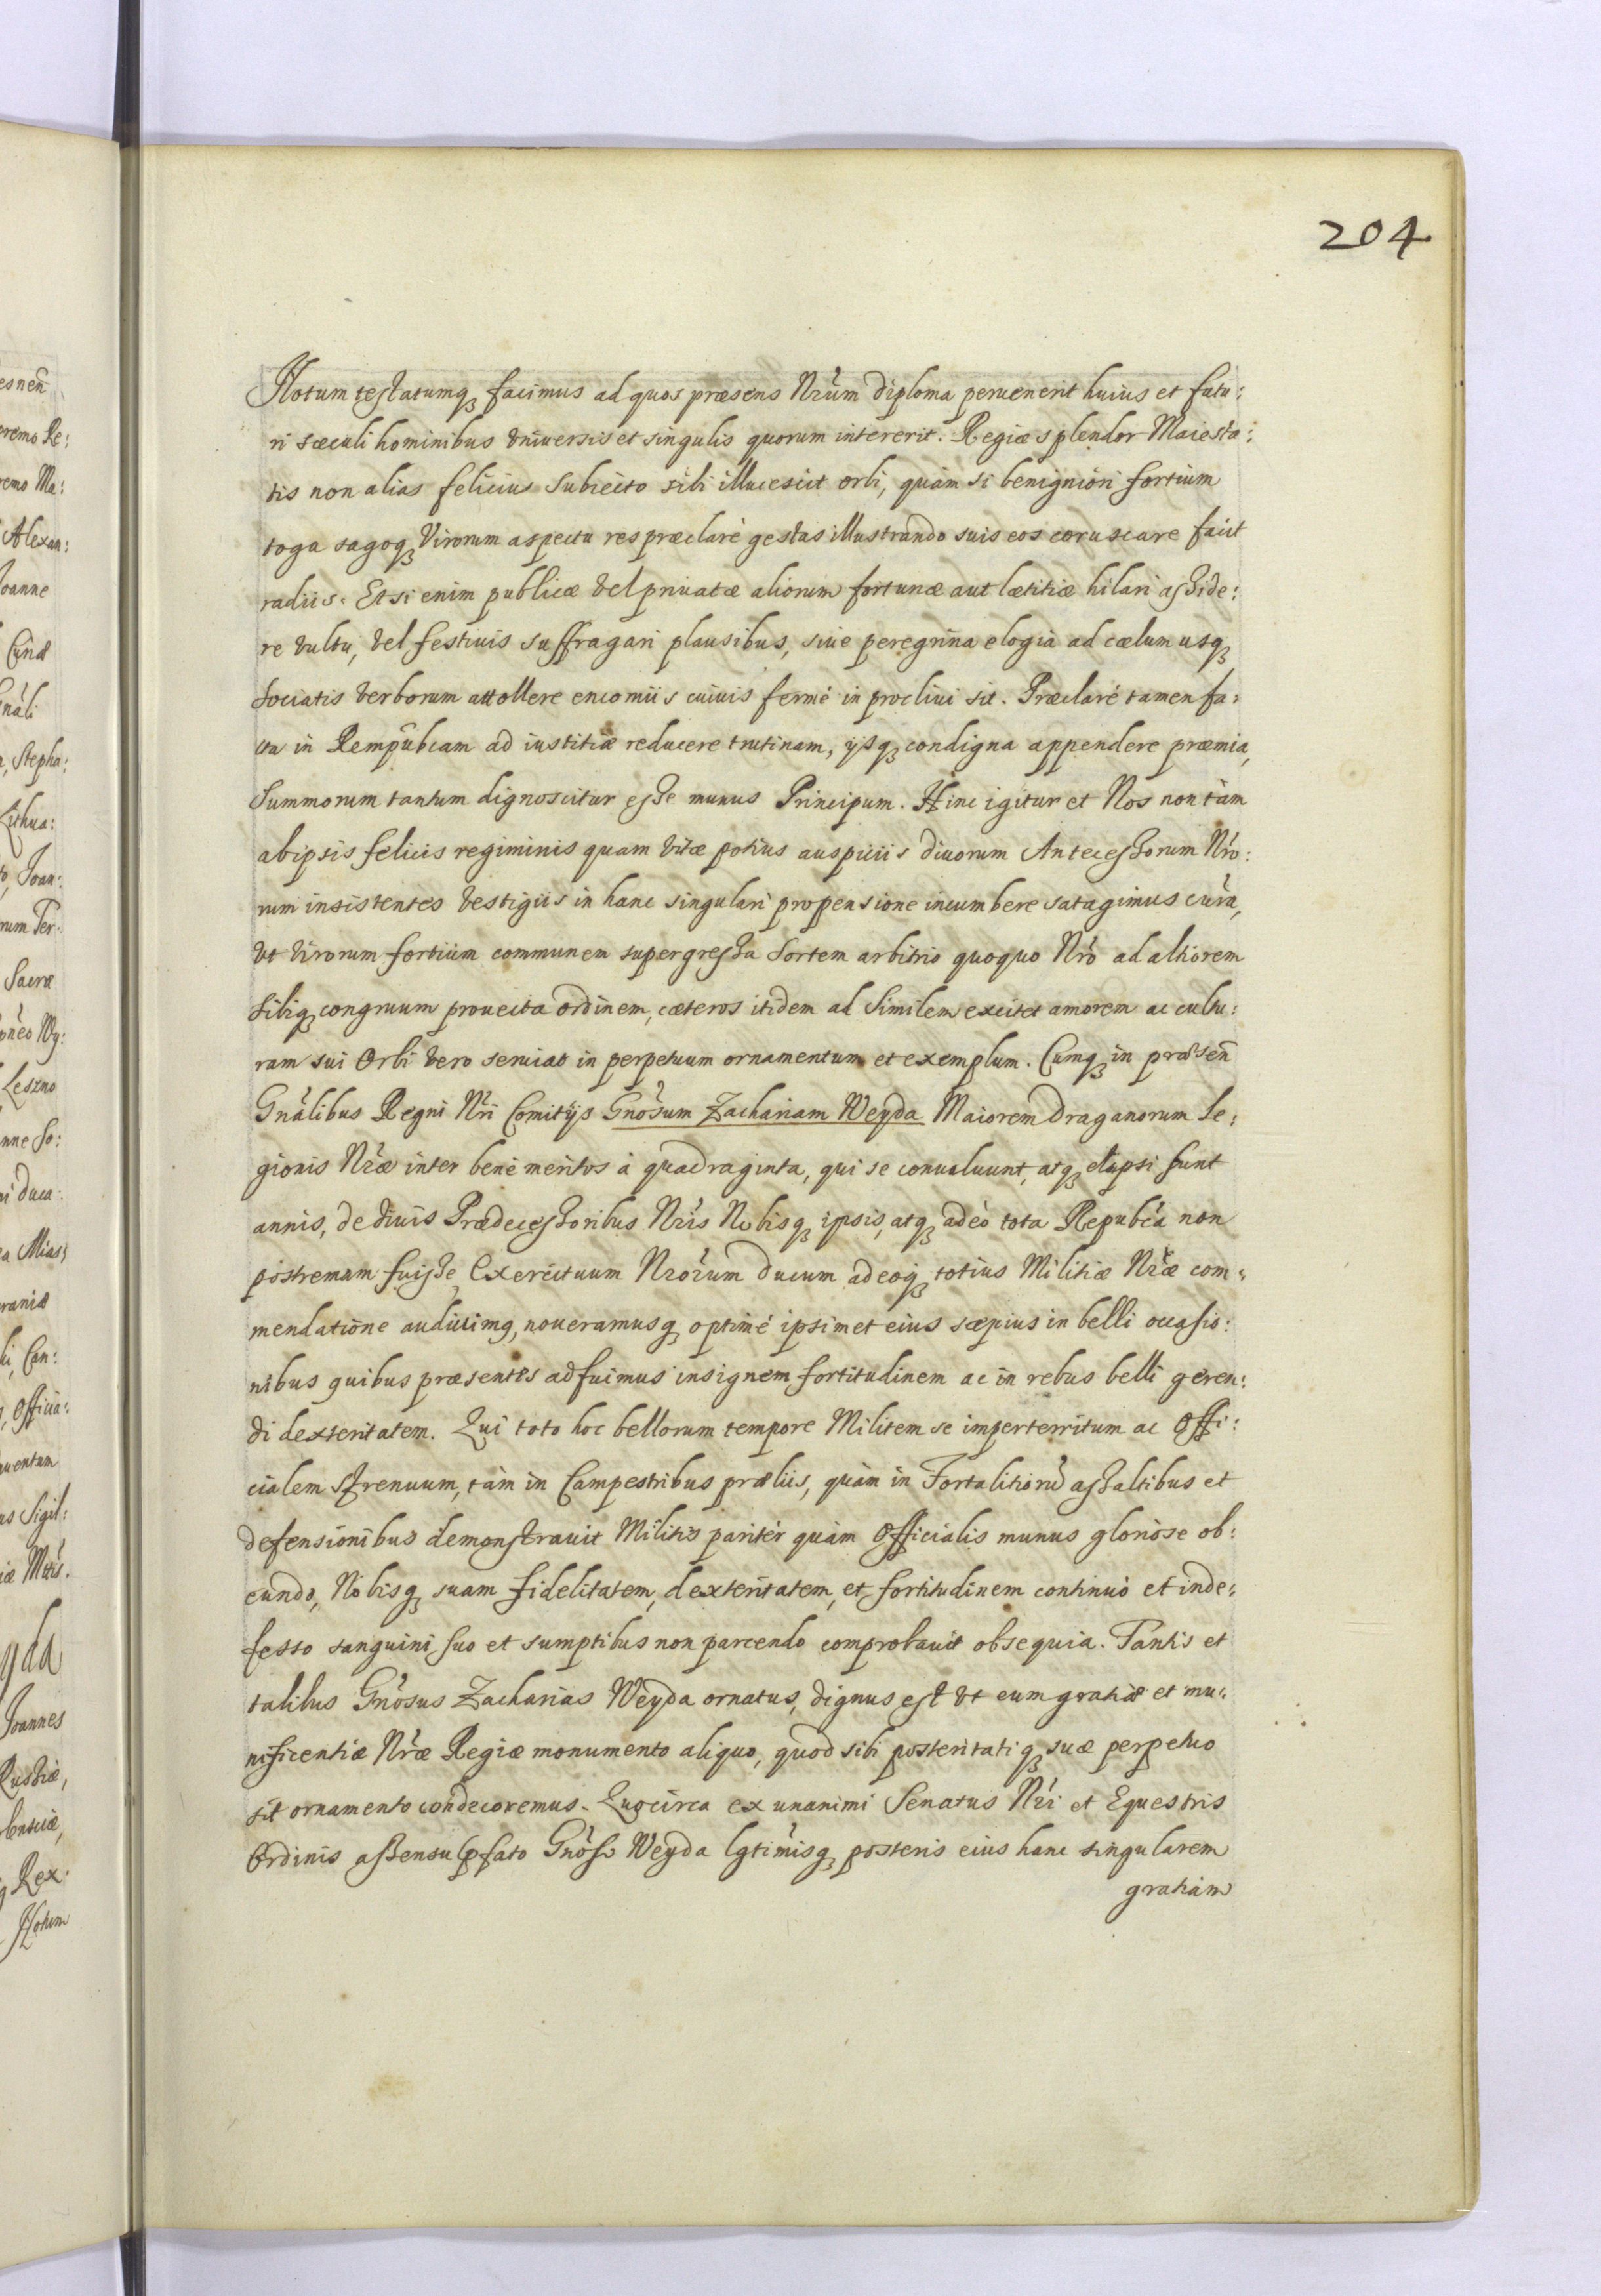 204
Notum testatumq₃ facimus ad quos præsens Nrũm diploma peruenerit huius et futu:
ri sæculi hominibus vniversis et singulis quorum intererit. Regiæ splendor Maiesta:
tis non alias felicius Subiecto sibi illucescit orbi, quàm si benigniori fortium
toga sagoq₃ Virorum aspectu res præclarè gestas illustrando suis eos coruscare facit
radiis. Et si enim publicæ vel priuatæ aliorum fortunæ aut lætitiæ hilari asside:
re vultu, vel festiuis suffragari plausibus, siue peregrina elogia ad cælum usq₃
Sociatis verborum attollere encomiis cuiuis fermè in procliui sit. Præclarè tamen fa:
cta in Rempûbcam ad iustitiæ reducere trutinam, ÿsq₃ condigna appendere præmia,
Summorum tantum dignoscitur esse munus Principum. Hinc igitur et Nos non tàm
ab ipsis felicis regiminis quam vitæ potius auspiciis diuorum Antecessorum Nrõ:
rum insistentes vestigiis in hanc singulari propensione incumbere satagimus curã,
vt virorum fortium communem supergressa Sortem arbitrio quoquo Nrõ ad altiorem
Sibiq₃ congruum prouecta ordinem, cæteros itidem ad Similem excitet amorem ac cultu:
ram sui Orbi vero seruiat in perpetuum ornamentum et exemplum. Cumq₃ in præsen̄
Gnãlibus Regni Nrĩ Comitÿs Gnõsum Zachariam Weyda Maiorem Draganorum Le:
gionis Nrãe inter benè meritos à quadraginta, qui se conuoluunt, atq₃ elapsi sunt
annis, de diuis Prædecessoribus Nrĩs Nobisq₃ ipsis, atq₃ adeò tota Repubcã non
postremam fuisse, Exercituum Nrõrum ducum adeoq₃ totius Militiæ Nrãe com:
mendatione audiuimq, noueramusq₃ optimè ipsimet eius sæpius in belli occasio:
nibus quibus præsentes adfuimus insignem fortitudinem ac in rebus belli geren:
di dexteritatem. Qui toto hoc bellorum tempore Militem se imperterritum ac Offi:
cialem strenuum, tàm in Campestribus præliis, quàm in Fortalitiorũ assaltibus et
defensionibus demonstrauit Militis paritèr quàm Officialis munus gloriose ob:
eundo, Nobisq₃ suam fidelitatem, dexteritatem, et fortitudinem continuò et inde:
fesso sanguini suo et sumptibus non parcendo comprobauit obsequia. Tantis et
talibus Gnõsus Zacharias Weyda ornatus, dignus est vt eum gratiæ et mu:
nificentiæ Nrãe Regiæ monumento aliquo, quod sibi posteritatiq₃ suæ perpetuo
sit ornamento condecoremus. Quocirca ex unanimi Senatus Nrĩ et Equestris
Ordinis assensu pfato Gnõso Weyda lgtimĩsq₃ posteris eius hanc singularem
gratiam